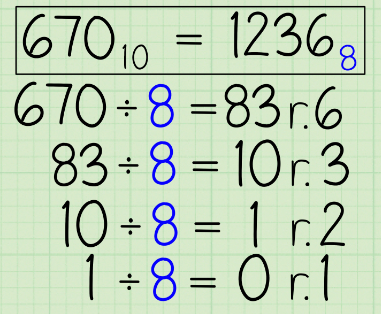 670₁₀ = 1236₈
670 ÷ 8 = 83 r. 6
83 ÷ 8 = 10 r. 3
10 ÷ 8 = 1 r. 2
1 ÷ 8 = 0 r. 1